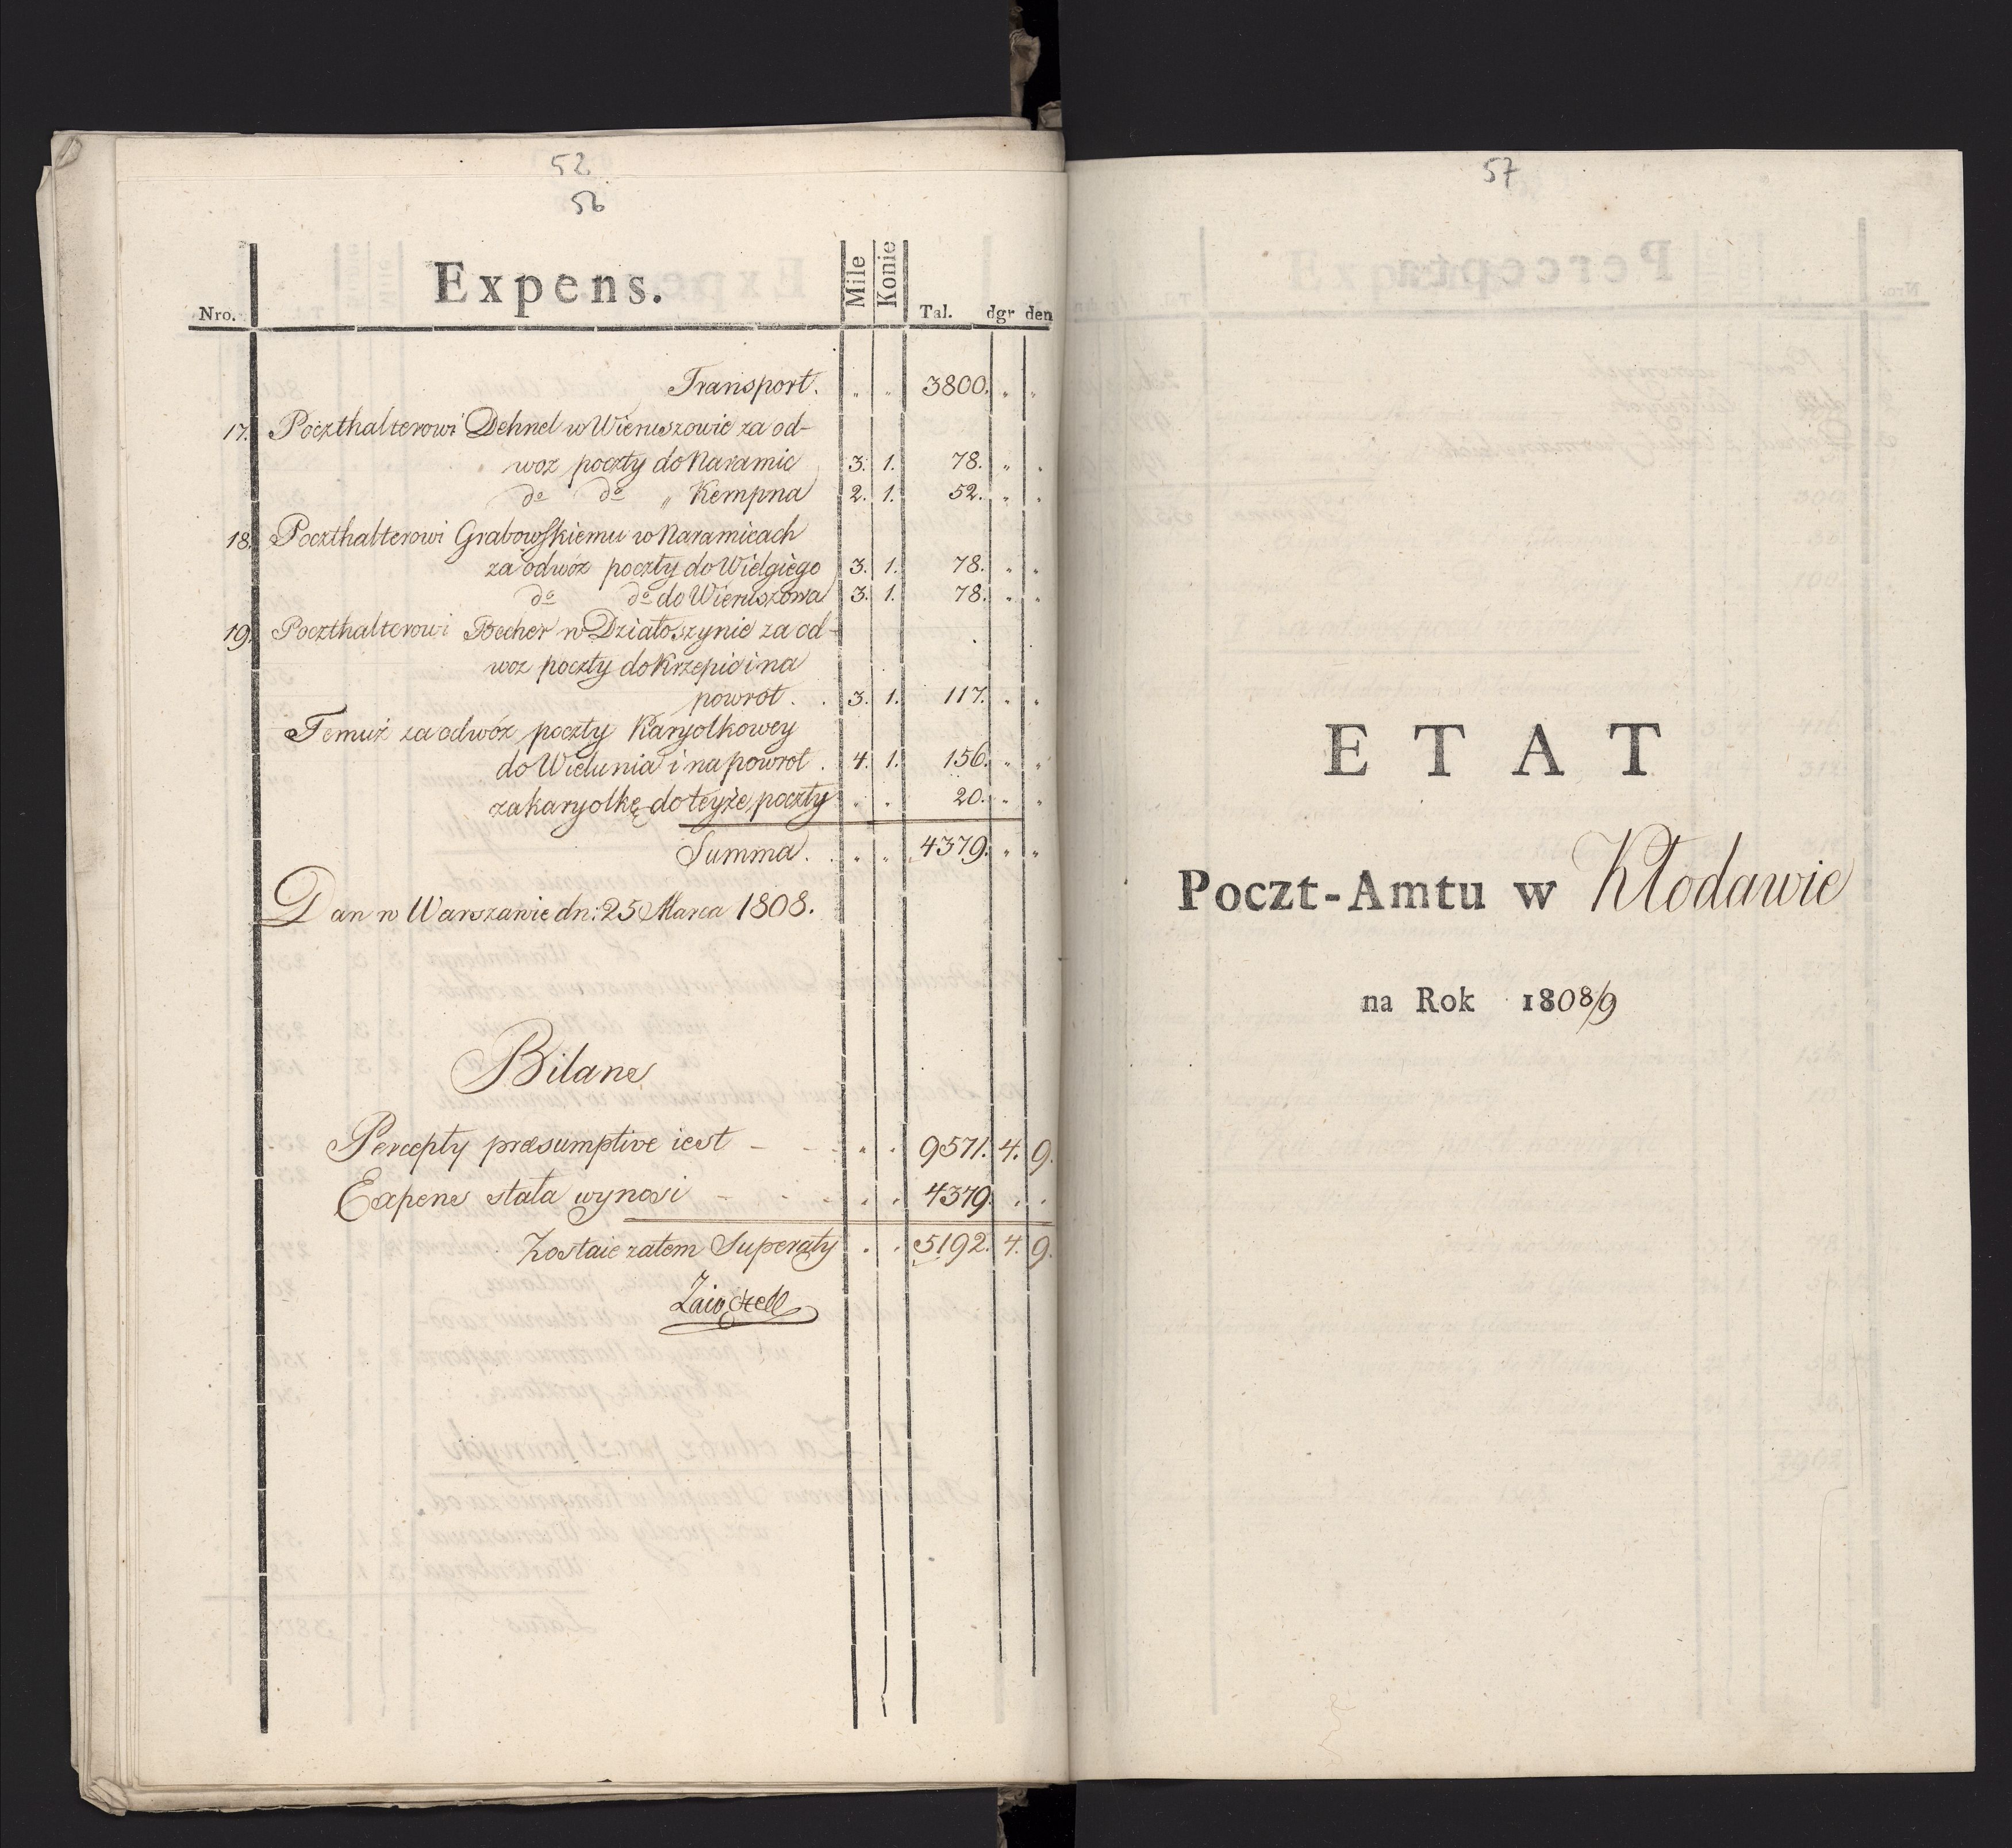 52
56
Nro. Expens. Mile Konie Tal. dgr den
Transport. „ „ 3800. „ „
17. Poczthalterowi Dehnel w Wieruszowie za od-
woz poczty do Naramic 3. 1. 78. „ „
do do „ Kempna 2. 1. 52. „ „
18. Poczthalterowi Grabowskiemu w Naramicach
za odwóz poczty do Wielgiego 3. 1. 78. „ „
do do do Wieruszowa 3. 1. 78. „ „
19. Poczthalterowi Becher w Działoszynie za od-
woz poczty do Krzepic i na
powrot . . 3. 1. 117. „ „
Temuż za odwóz poczty Karyolkowey
do Wielunia i na powrot . 4. 1. 156. „ „
za karyolkę do teyże poczty „ „ 20. „ „
Summa . . „ „ 4379. „ „
Dan w Warszawie dn: 25 Marca 1808.
Bilans
Percepty praesumptive iest - - - „ . 9571. 4. 9.
Expens stała wynosi - - - . . 4379. . .
Zostaie zatem Superaty . . 5192. 4. 9.
Zaiączek
57
ETAT
Poczt-Amtu w Kłodawie
na Rok 1808/9